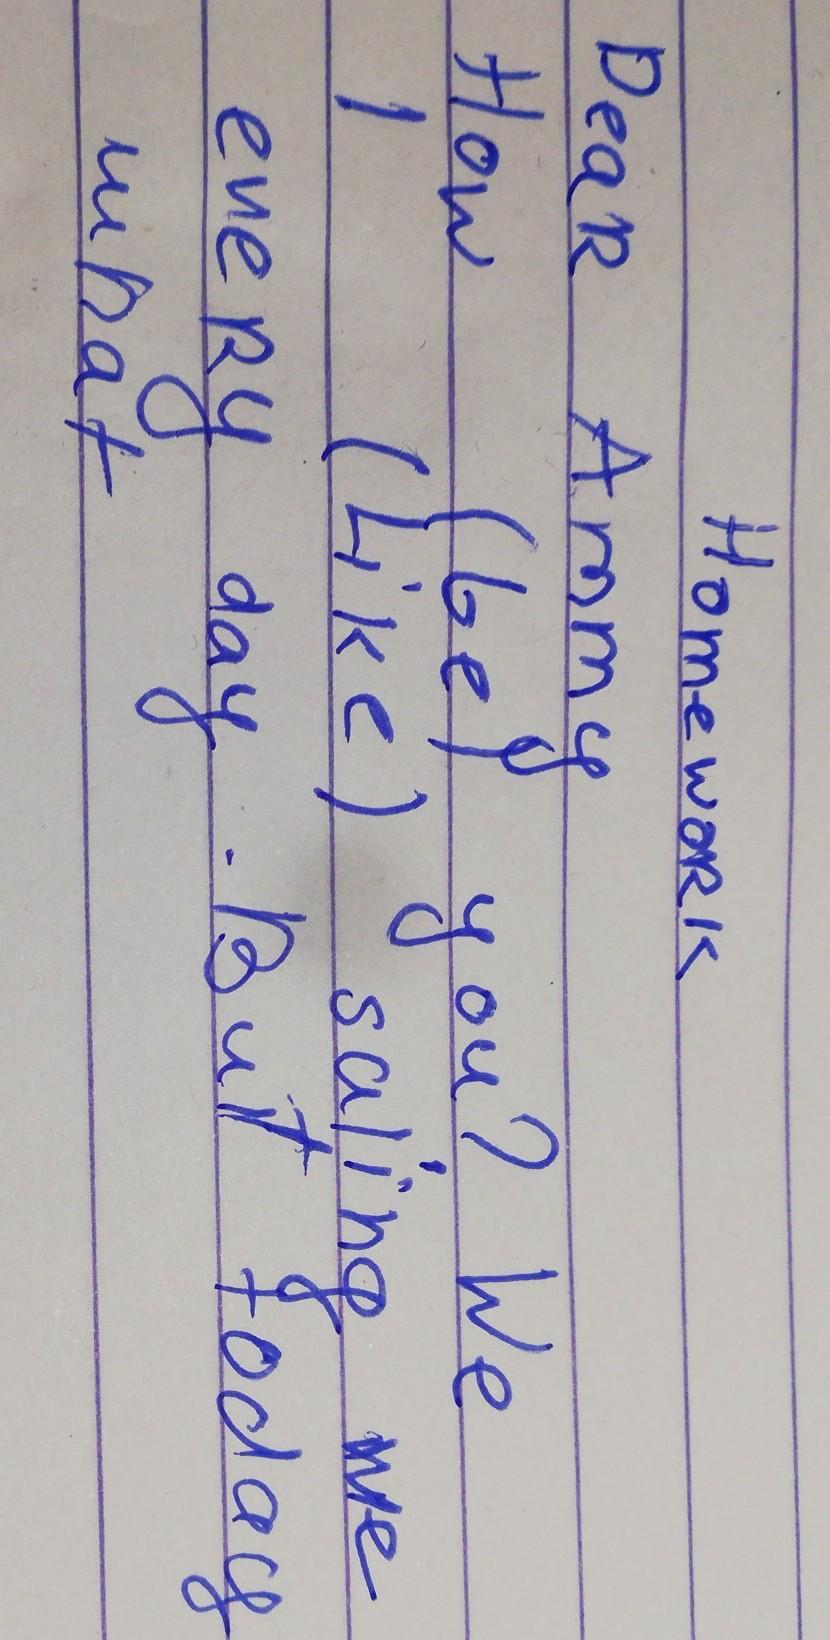 Homework
Dear Ammy
How (be) you? We
I (Like) saling me
every day. But today
what